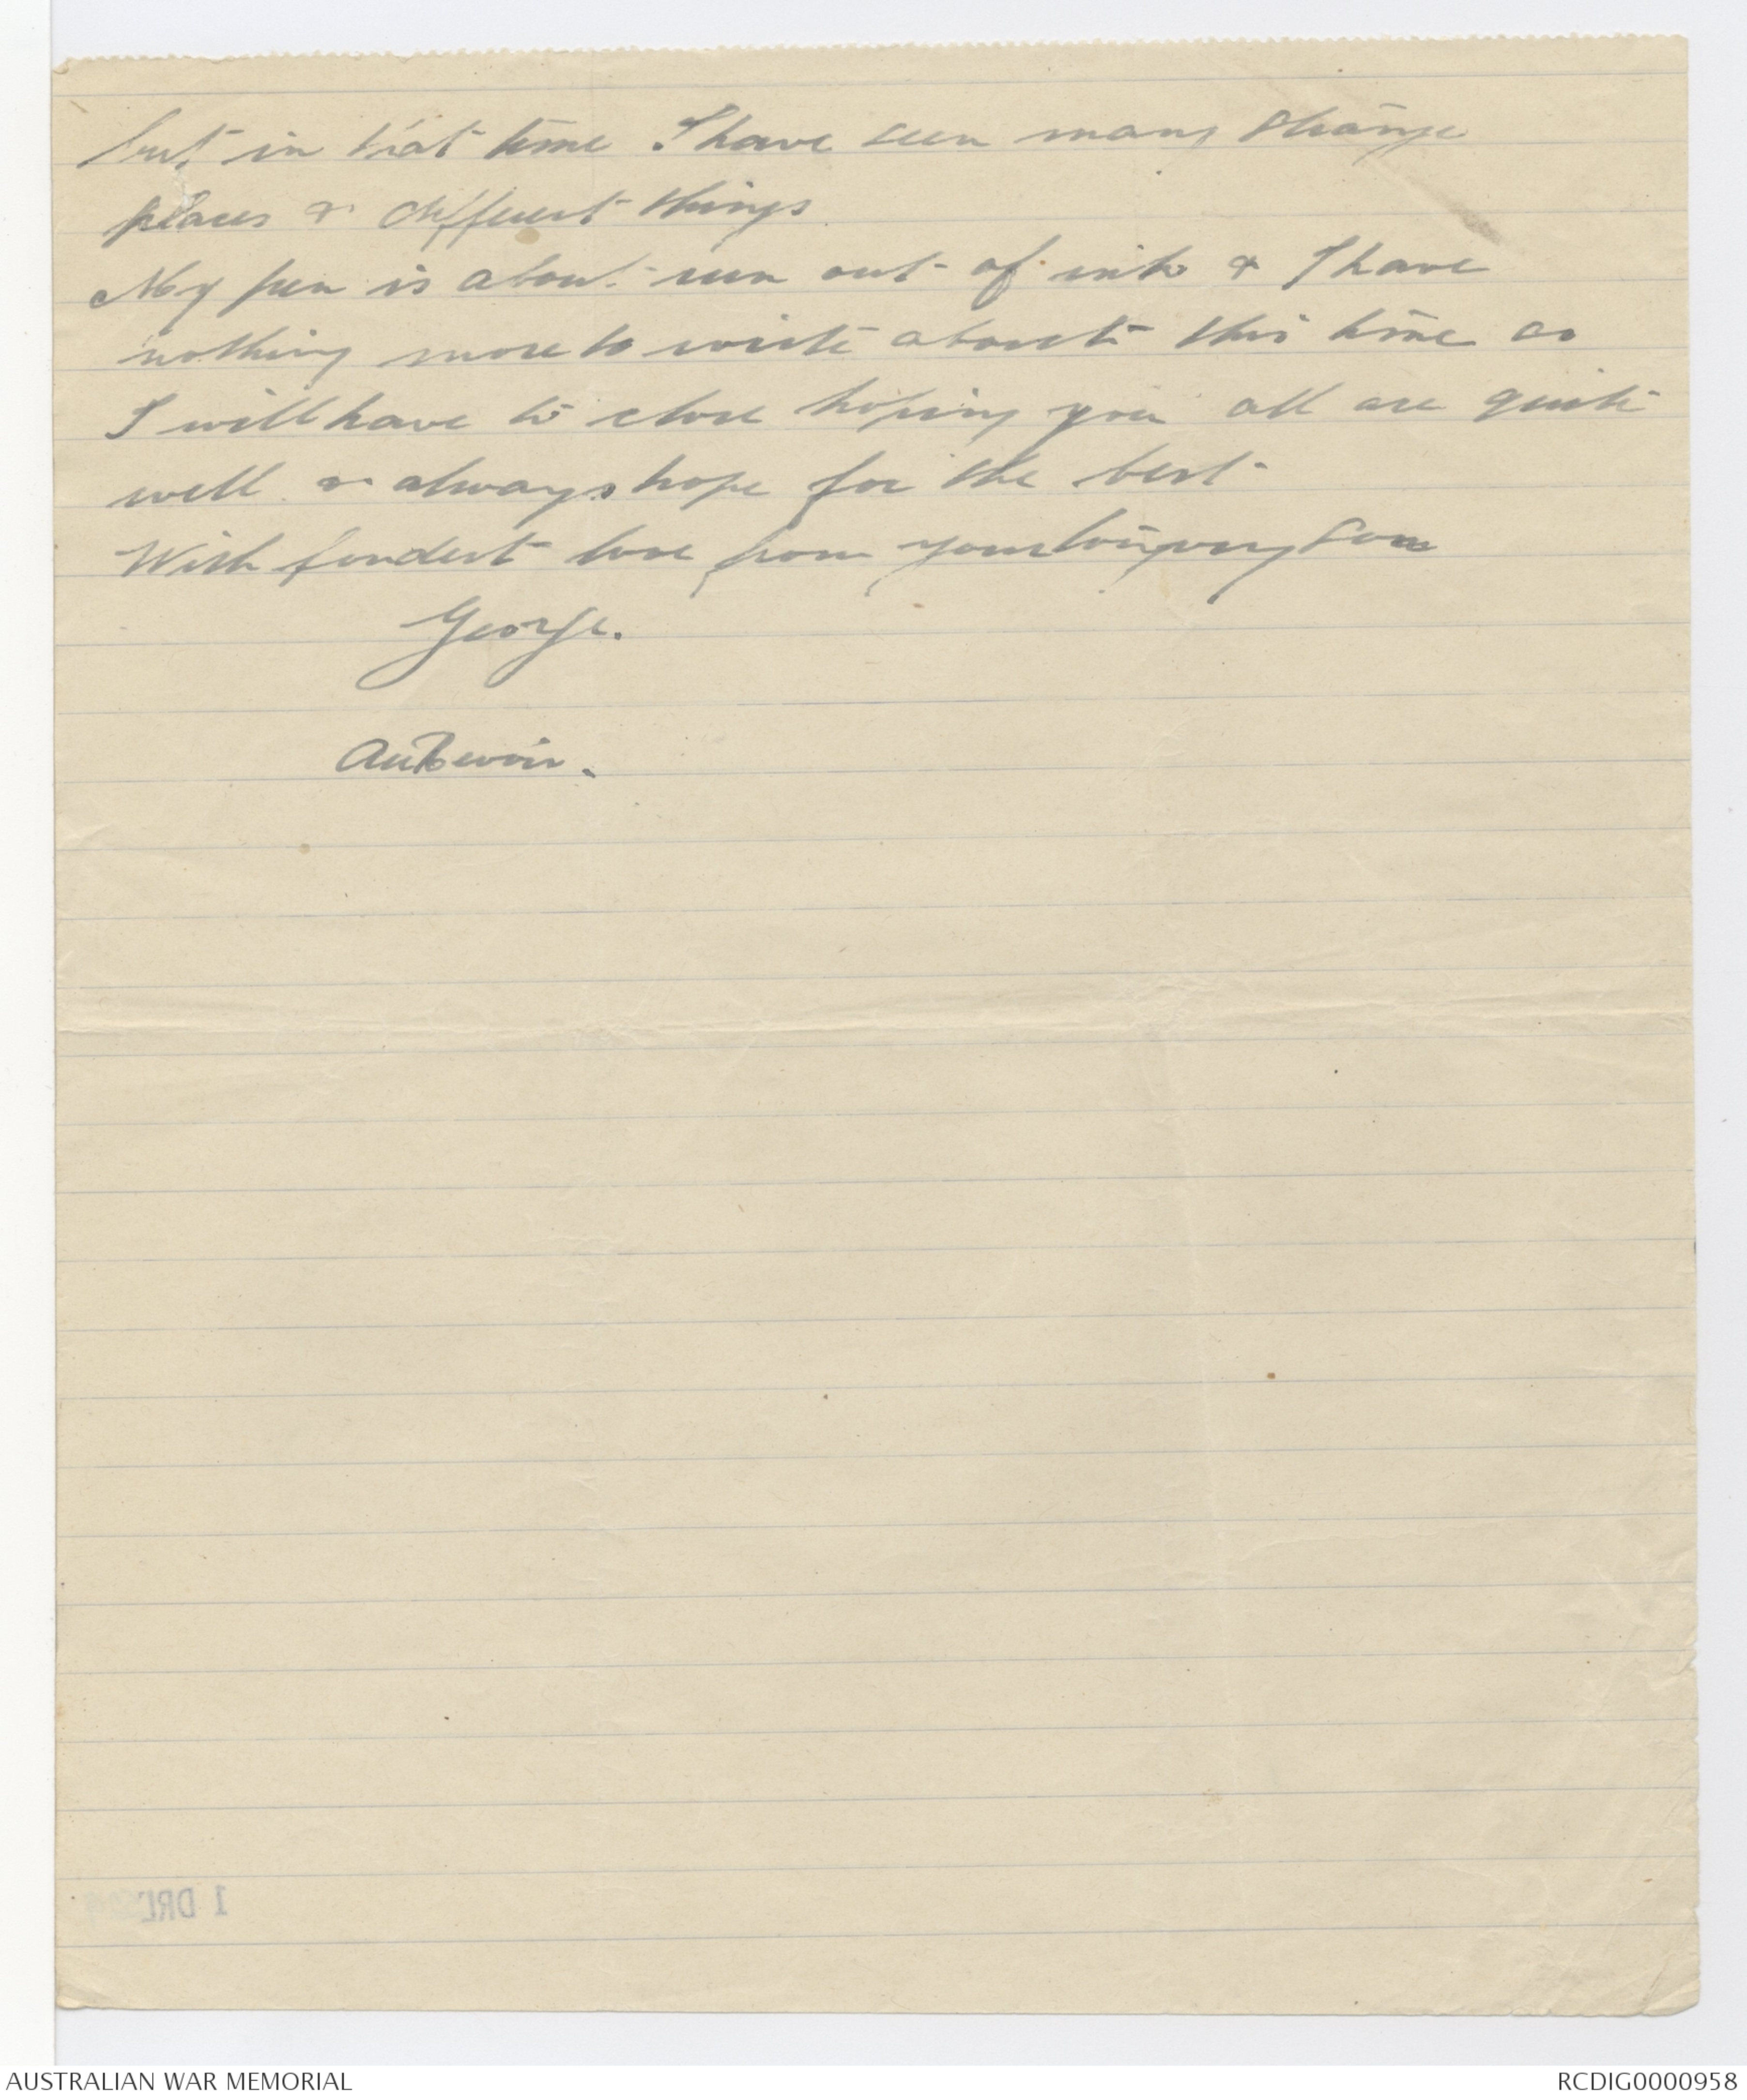 but in that time I have seen many strange
places & different things
My pen is about run out of ink & I have
nothing more to write about this time so
I will have to close hoping you all are quite
well & always hope for the best
With fondest love from your loving son
George.
Au Revoir.
1 DRL
AUSTRALIAN WAR MEMORIAL
RCDIG0000958